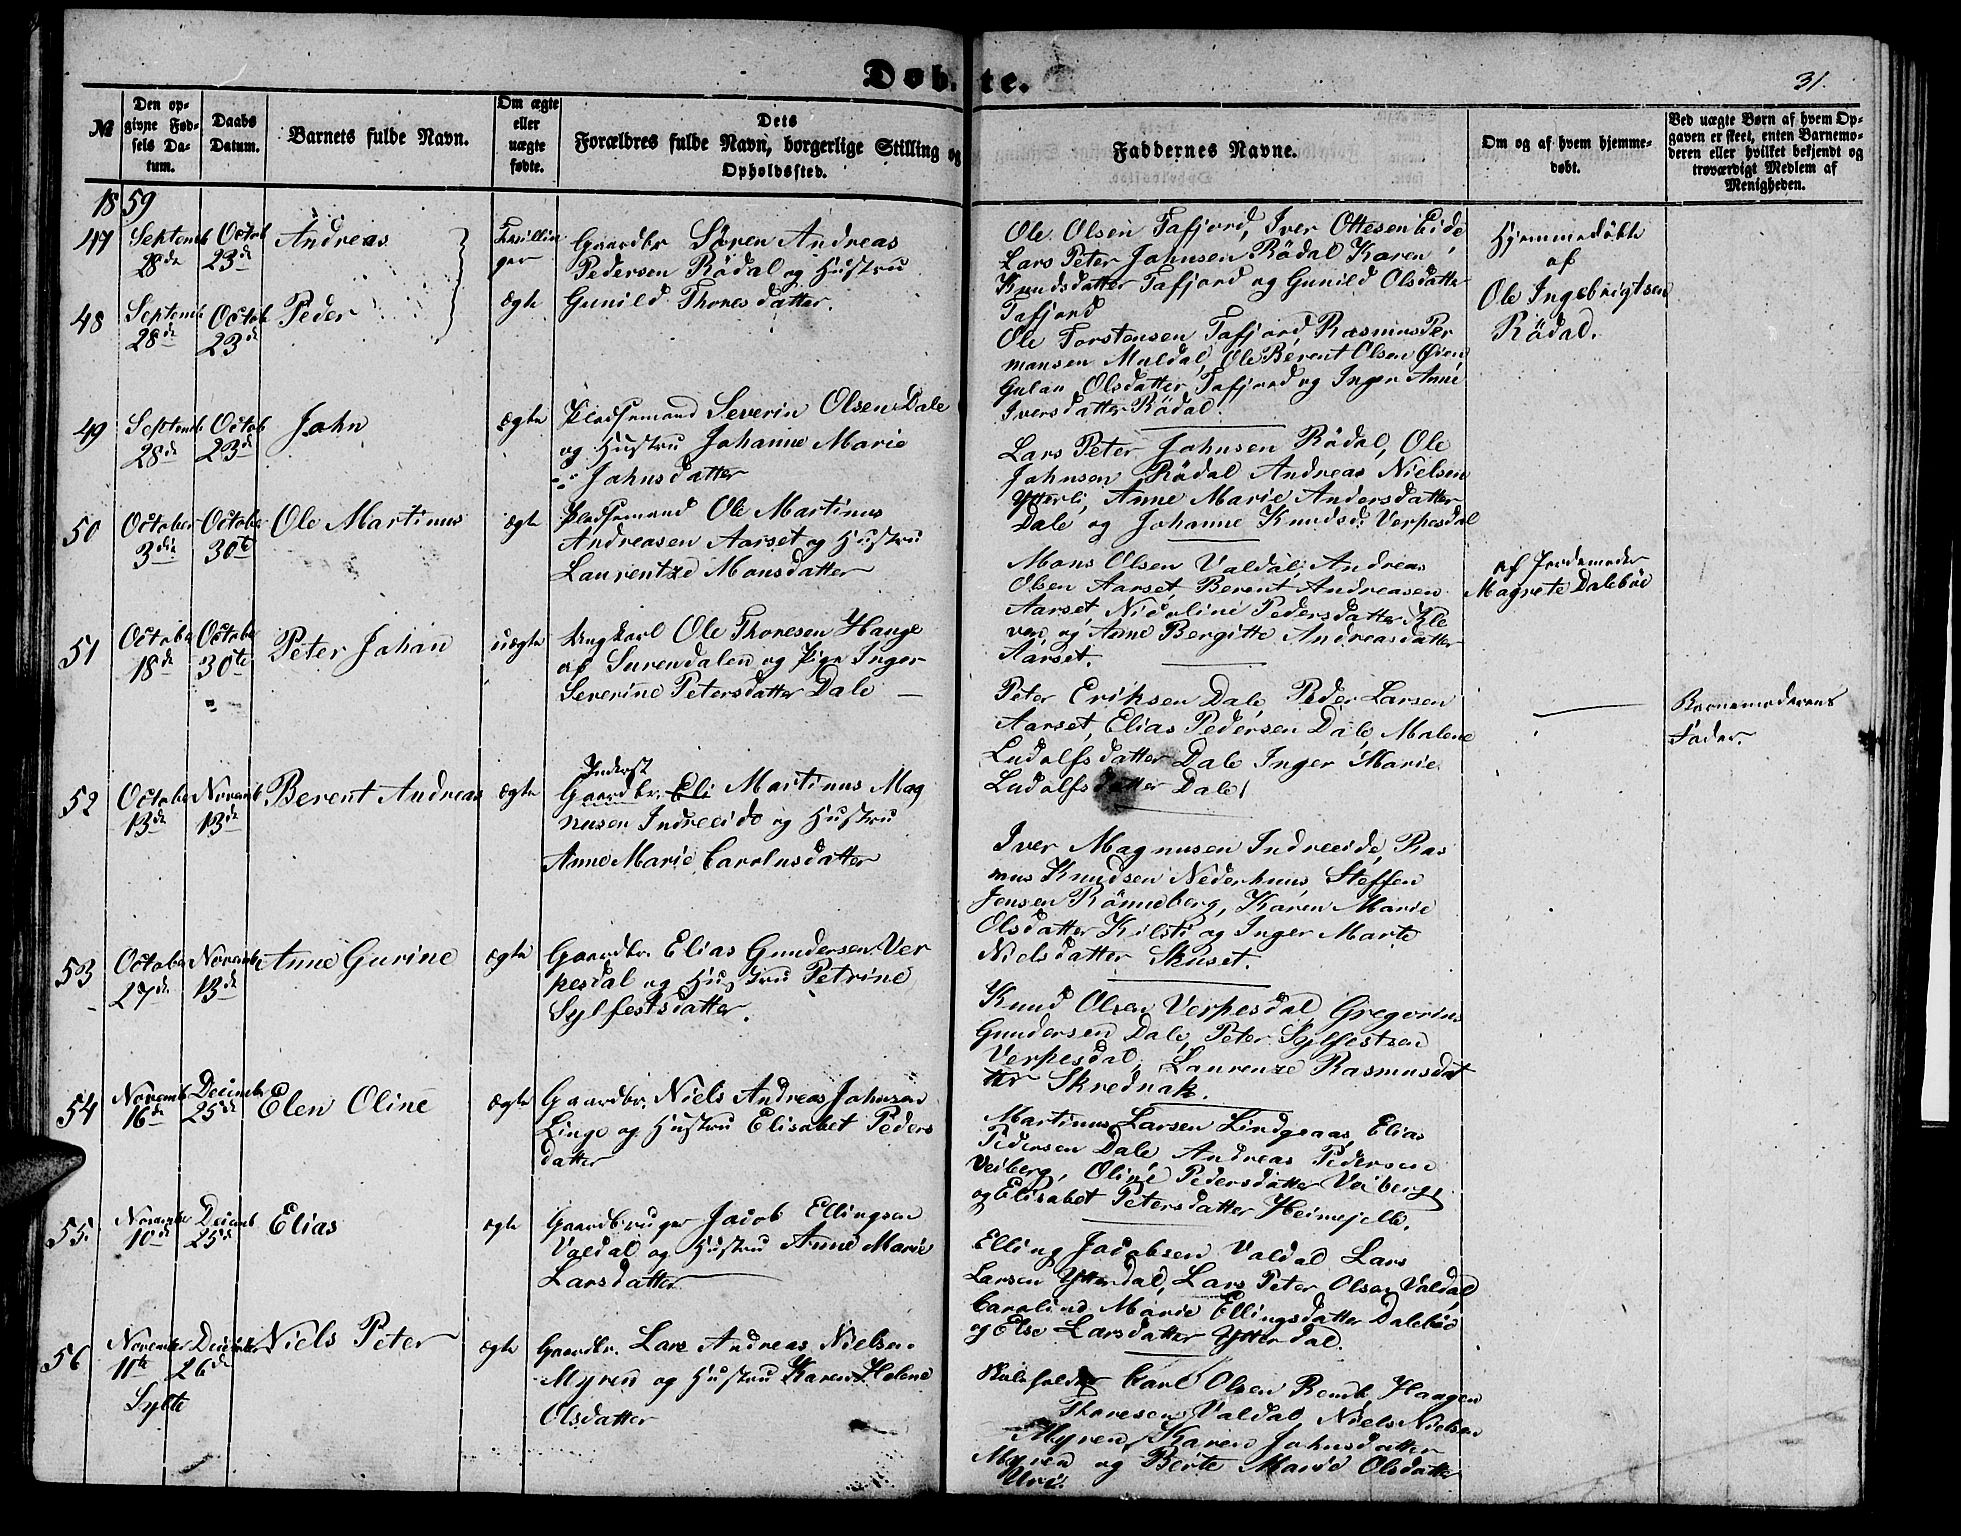 Døbte.
31.
№
Den op-
givne Fød-
sels Da-
tum.
Daabs
Datum.
Barnets fulde Navn.
Om ægte
eller
uægte
fødte.
Dets
Forældres fulde Navn, borgerlige Stilling og
Opholdssted.
Faddernes Navne.
Om og af hvem hjemme-
døbt.
Ved uægte Børn af hvem Op-
gaven er skeet, enten Barnemo-
deren eller hvilket bekjendt og
troværdigt Medlem af
Menigheden.
1859
47 Septemb 28de Octob 23de Andreas
Tvillin
ger
Gaardbr Sören Andreas
Pedersen Rödal og Hustru
Gunild Thoresdatter.
Ole Olsen Tafjord, Iver Ottesen Eide
Lars Peter Johnsen Rödal Karen
Knudsdatter Tafjord og Gunild Olsdatter
Tafjord
Hjemmedöbte
af
Ole Ingebrigtsen
Rödal.
48 Septemb 28de Octob 23de Peder ægte
Ole Torstensen Tafjord, Rasmus Per
mansen Muldal, Ole Berent Olsen Öien
Olsdatter Tafjord og Inger Anne
Iversdatter Rödal.
49 Septemb 28de Octob 23de John ægte
Pladsemand Severin Olsen Dale
og Hustru Johanne Marie
Johnsdatter
Lars Peter Johnsen Rödal, Ole
Johnsen Rödal Andreas Nielsen
Ytterli, Anne Marie Andersdatter
Dale og Johanne Knudsd. Verpesdal
50 October 3die Octobe 30te Ole Martinus ægte
Pladsemand Ole Martinus
Andreasen Aarset og Hustru
Laurentze Monsdatter
Mons Olsen Valdal, Andreas
Olsen Aarset, Berent Andreasen
Aarset, Nicoline Pedersdatter Kle
ven, og Anne Bergitte Andreasdatter
Aarset.
af Jordemoder
Magrete Daleböe
51 Octobe 18de Octobe 30te Peter Johan uægte
Ungkarl Ole Thoresen Hauge
af Surendalen og Pige Inger
Severine Petersdatter Dale
Peter Eriksen Dale, Peder Larsen
Aarset, Elias Pedersen Dale, Malene
Ludolfsdatter Dale Inger Marie
Ludolfsdatter Dale
Barnemoderens
Fader.
52 Octobe 13de Novemb 13de Berent Andreas ægte
Inderst
Gaardbr. Eli Martinus Mag
nusen Indreeide og Hustru
Anne Marie Carolusdatter
Iver Magnusen Indreeide, Ras
mus Knudsen Nederhuus, Steffen
Jensen Rönneberg, Karen Marie
Olsdatter Kilsti og Inger Marte
Nielsdatter Skuset.
53 Octobe 27de Novembe 13de Anne Gurine ægte
Gaardbr. Elias Gundersen Ver
pesdal og Hustru Petrine
Sylfestsdatter.
Knud Olsen Verpesdal, Gregorius
Gundersen Dale, Peter Sylfestsen
Verpesdal, Laurenze Rasmusdat
ter Skrednak.
54 Novemb 16de Decemb 25de Elen Oline ægte
Gaardbr. Niels Andreas Johnsen
Linge og Hustru Elisabet Peders
datter
Martinus Larsen Lindgaas, Elias
Pedersen Dale Andreas Pedersen
Veiberg, Oline Pedersdatter Veiberg
og Elisabet Petersdatter Heimejelle.
55. November 10de Decemb 25de Elias ægte
Gaardbruger Jacob Ellingsen
Valdal og Hustru Anne Marie
Larsdatter
Elling Jacobsen Valdal Lars
Larsen Ytterdal, Lars Peter Olsen Valdal
Caroline Marie Ellingsdatter Daleböe
og Else Larsdatter Ytterdal.
56 November 11te Sylte December 26de Niels Peter ægte
Gaardbr. Lars Andreas Nielsen
Myren og Hustru Karen Helene
Olsdatter
Skoleholder Carl Olsen Remb, Haagen
Thoresen Valdal, Niels Nielsen
Myren, Karen Johnsdatter
Myren og Berte Marie Olsdatter
Uri.